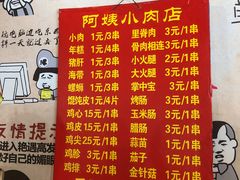 阿姨小肉店
小肉 1元/3串 里脊肉 3元/1串
年糕 1元/4串 骨肉相连3元/1串
猪肝 1元/3串 小火腿 2元/1串
海带 1元/3串 大火腿 3元/1串
螺蛳 1元/3串 掌中宝 3元/1串
馄饨皮1元/4片 烤肠 3元/1串
鸡心 1元/5串 玉米肠 3元/1串
鸡皮 1元/5串 腊肠 3元/1串
鸡尖 2元/1串 蒜苗 1元/1串
鸡胗 3元/1串 茄子 1元/1串
鸡排 3元/1串 金针菇 1元/1串
友情提
进入艳遇高发
好自己的媚眼